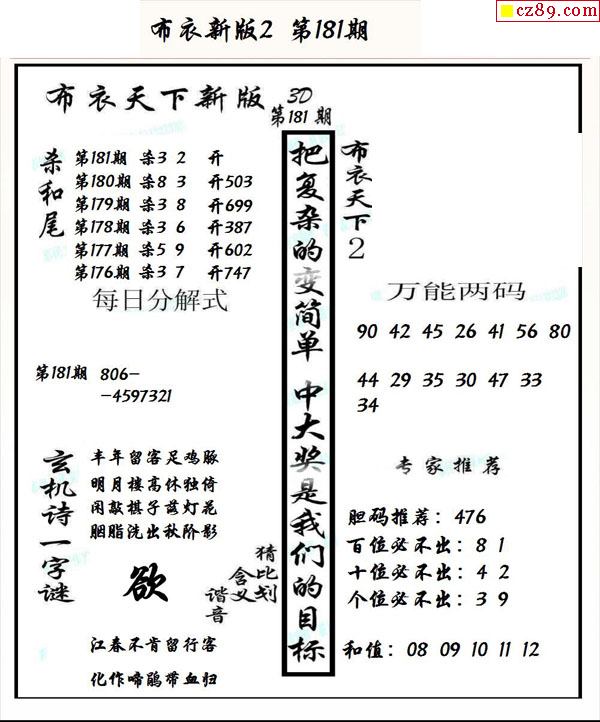 cz89.com
布衣新版2 第181期
布衣天下新版 3D
第181期
杀和尾
第181期 杀3 2 开
第180期 杀8 3 开503
第179期 杀3 8 开699
第178期 杀3 6 开387
第177期 杀5 9 开602
第176期 杀3 7 开747
每日分解式
第181期 806-
-4597321
玄机诗一字谜
丰年留客足鸡豚
明月楼高休独倚
闲敲棋子落灯花
胭脂洗出秋阶影
欲
猜比划
含义
谐音
江春不肯留行客
化作啼鹃带血归
把复杂的变简单 中大奖是我们的目标
布衣天下2
万能两码
90 42 45 26 41 56 80
44 29 35 30 47 33
34
专家推荐
胆码推荐：476
百位必不出：8 1
十位必不出：4 2
个位必不出：3 9
和值：08 09 10 11 12